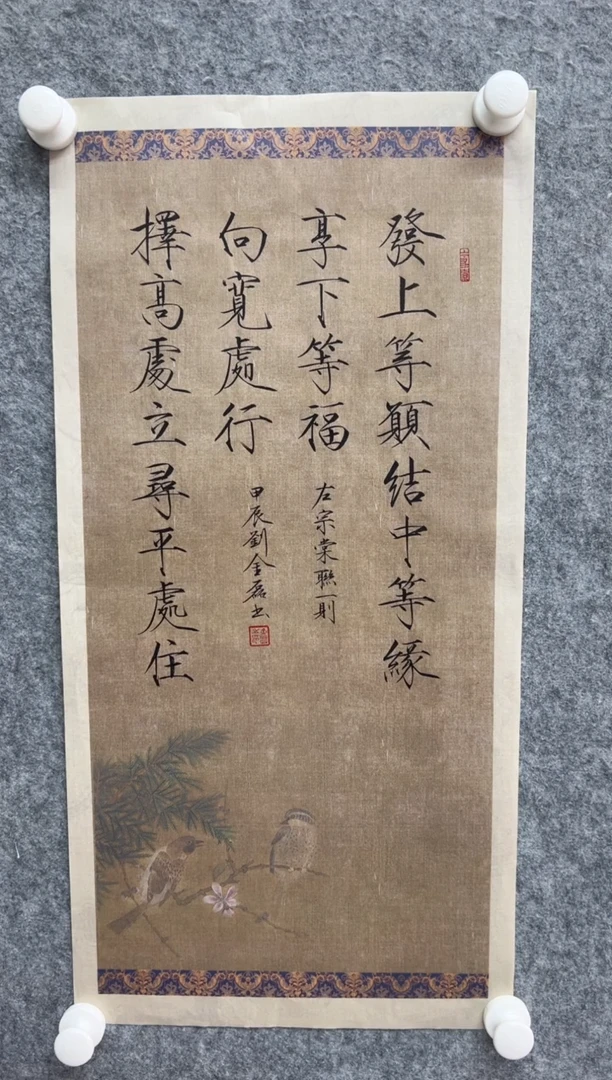 發上等願結中等緣
享下等福
左宗棠聯一則
擇高處立尋平處住
向寬處行
甲辰劉金磊书